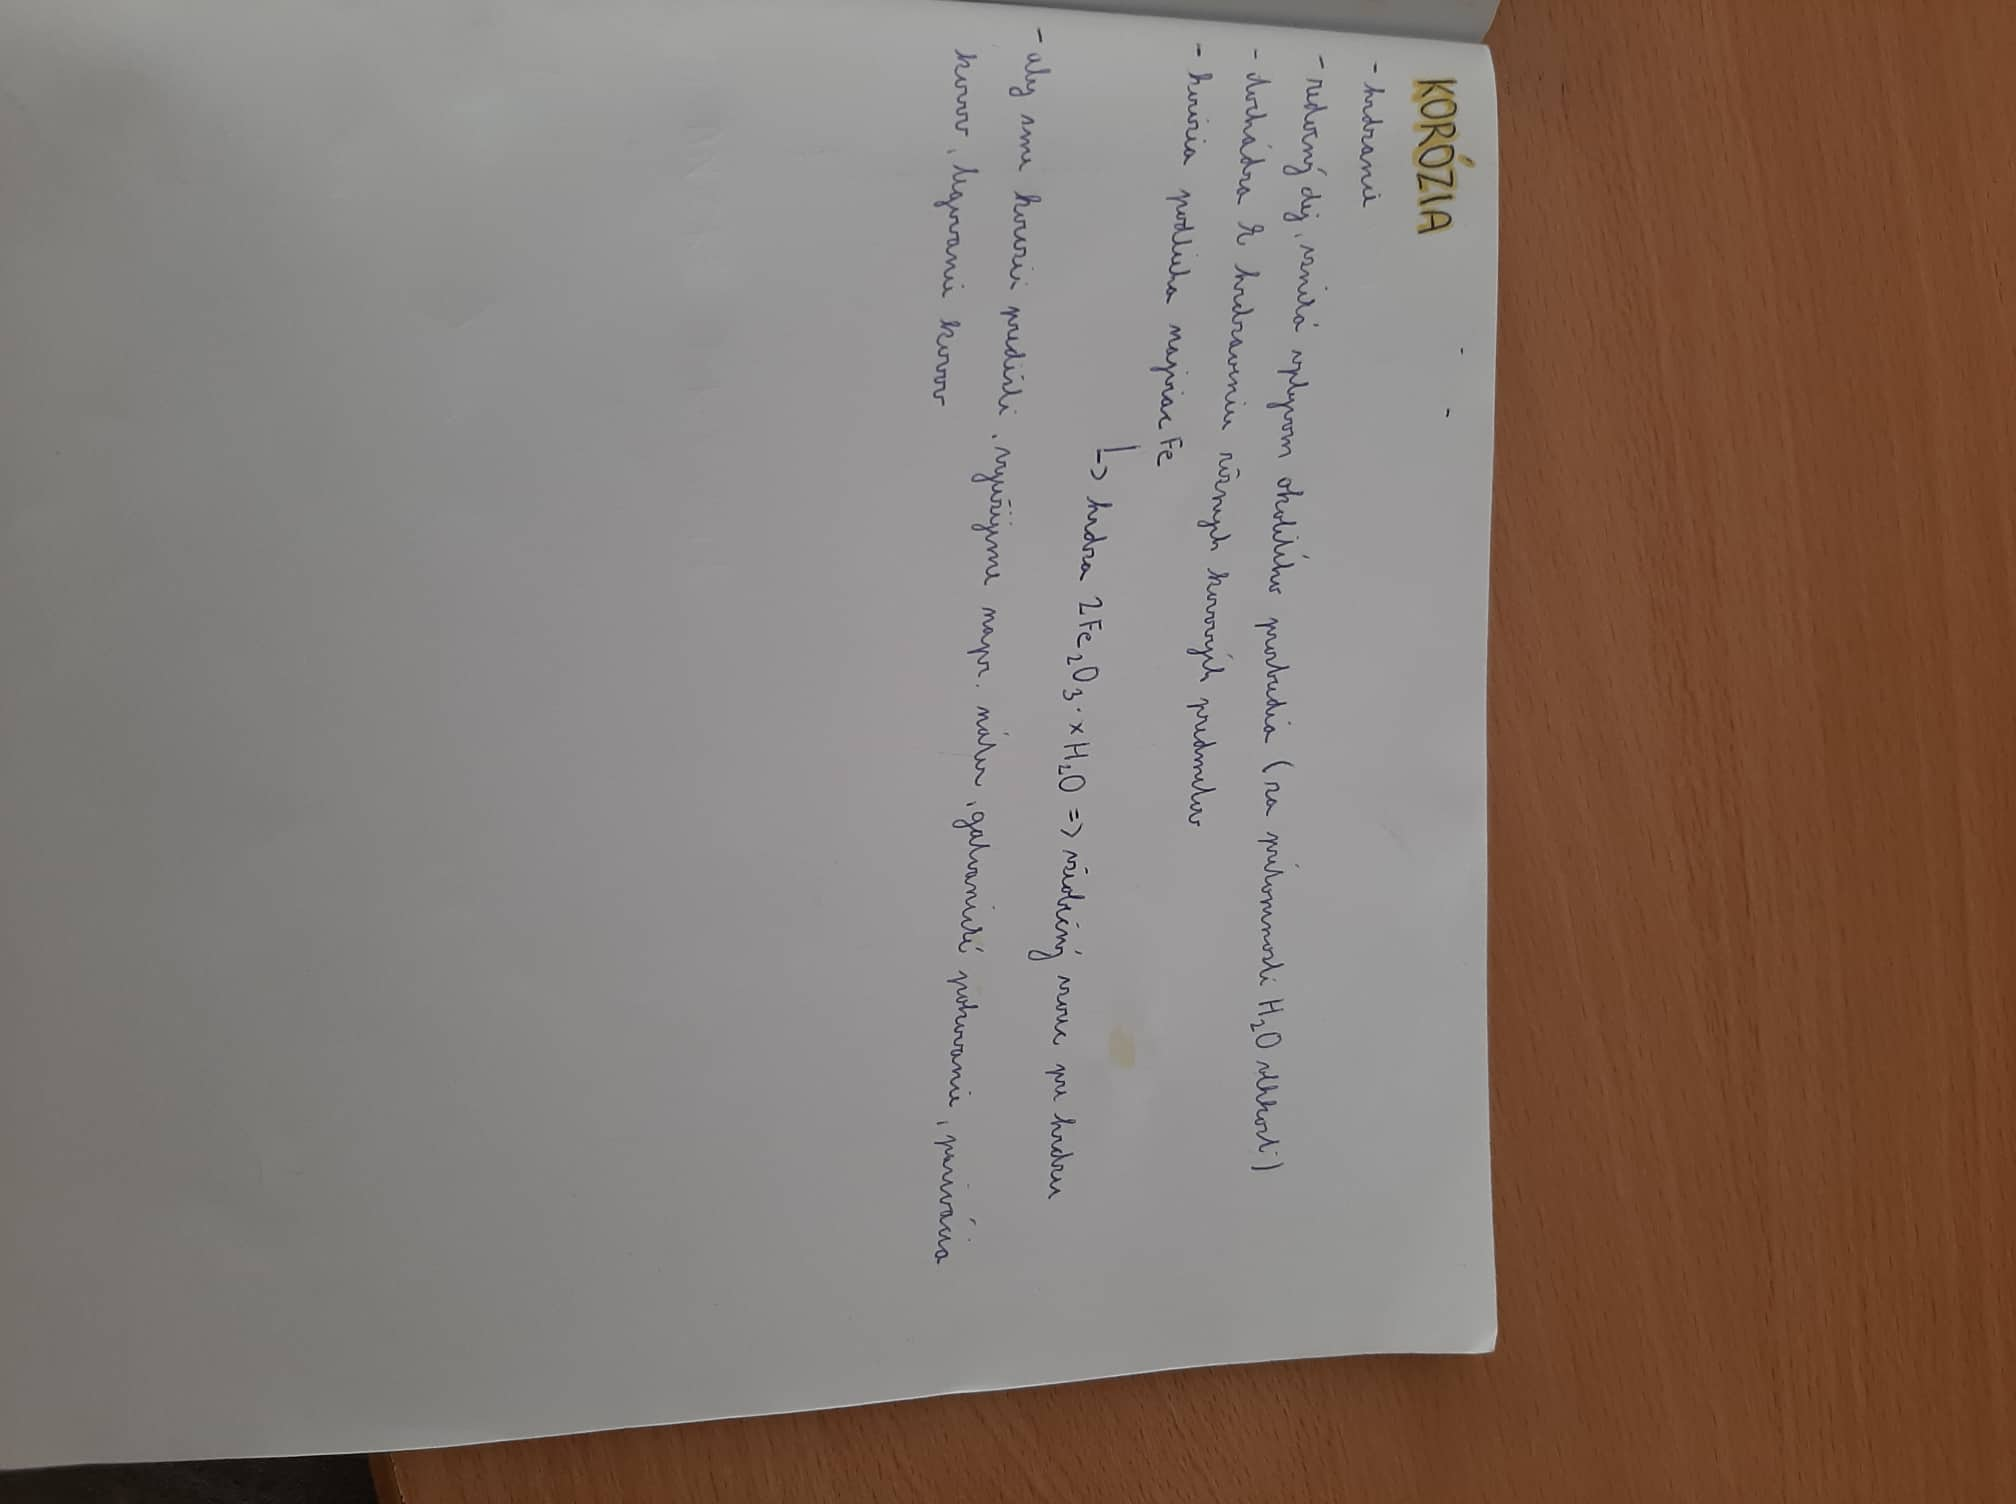 KORÓZIA
- hrdzanie
- redoxný dej, vzniká vplyvom okolitého prostredia (za prítomnosti H₂O vlhkosti)
- dochádza k hrdzaveniu rôznych kovových predmetov
- korózia podlieha najviac Fe
↳ hrdza 2Fe₂O₃ · xH₂O => všeobecný vzorec pre hrdzu
- aby sme korózii predišli, využijeme napr. náter, galvanické pokovanie, pasivácia
kovov, legovanie kovov